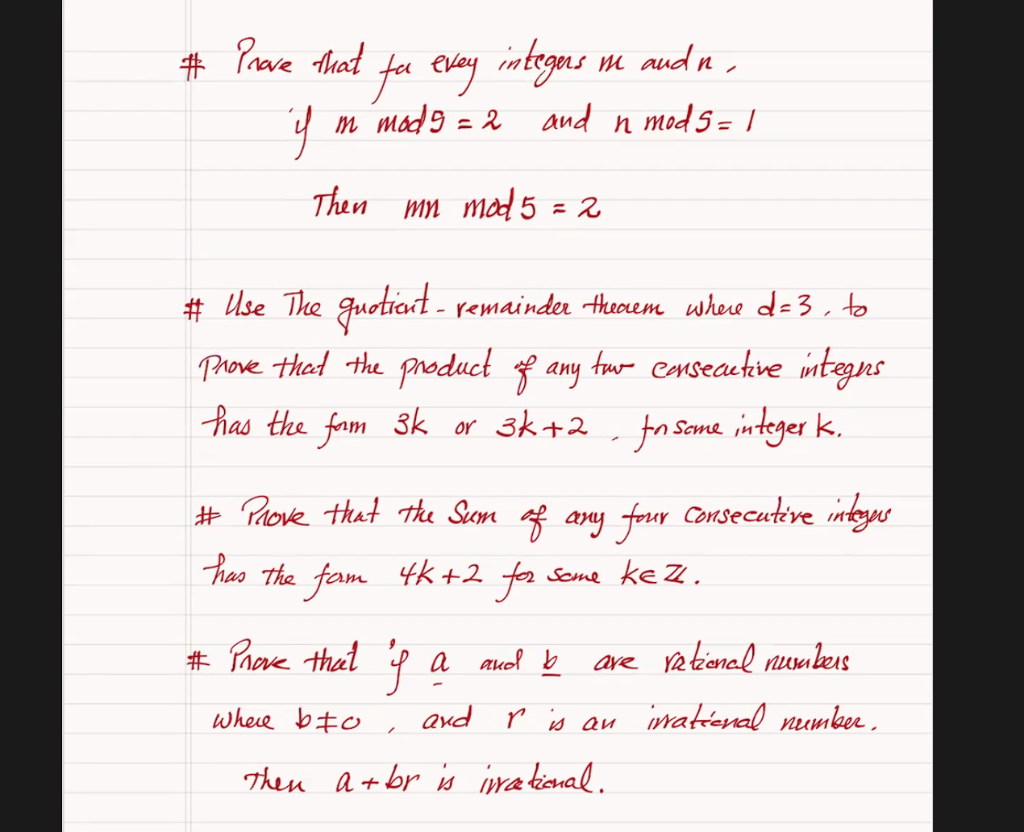 # Prove that for every integers m and n,
if m mod 5 = 2 and n mod 5 = 1
Then mn mod 5 = 2
# Use The quotient-remainder theorem where d=3, to
prove that the product of any two consecutive integers
has the form 3k or 3k+2, for some integer k.
# Prove that the Sum of any four consecutive integers
has the form 4k+2 for some k∈ℤ.
# Prove that if a and b are rational numbers
where b≠0, and r is an irrational number.
Then a+br is irrational.